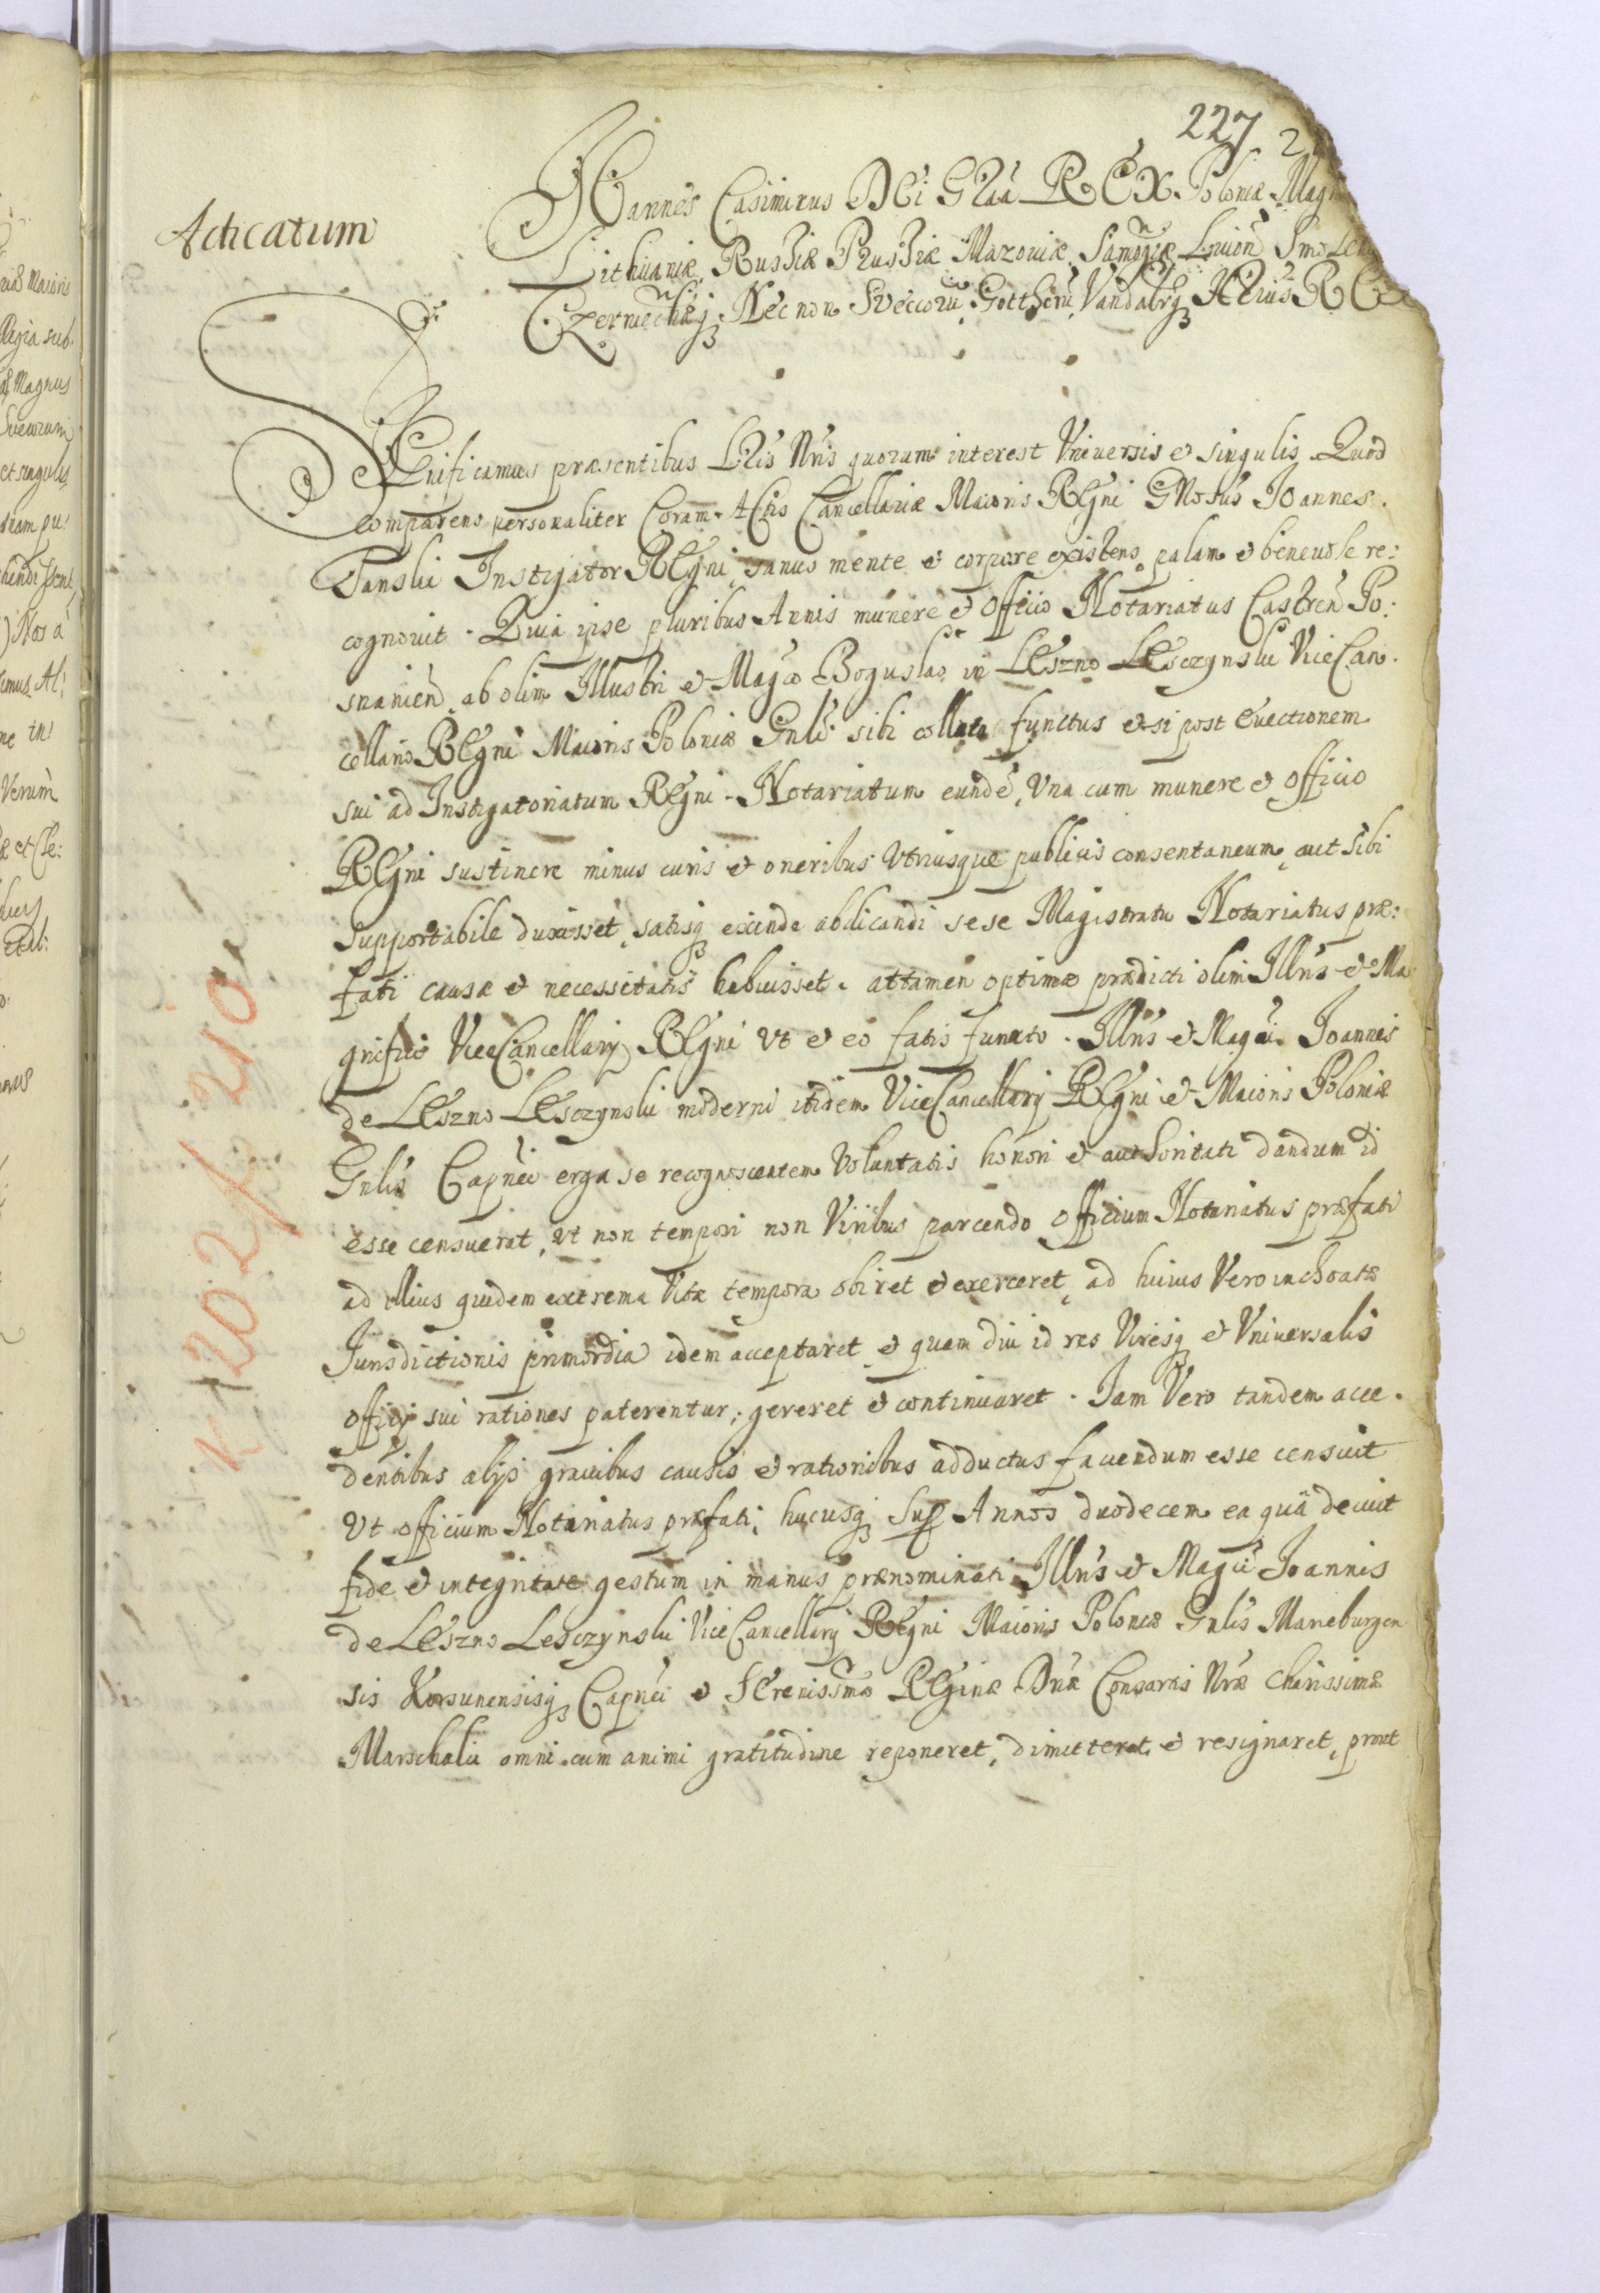 227
2
Acticatum
Joannes Casimirus DEi GRaa REX Poloniæ Mag
Lithuaniæ, Russiæ Prussiæ Mazoviæ, Samogiæ Livoñ Smolen
Czerniechūq Nec non Sveccorū, Gotthorū, Vandalorūq HÆrius REX
Significamus præsentibus LRis Nris quorum interest Universis et singulis Quod
comparens personaliter Coram Actis Cancellariæ Maioris REgni GNosus Joannes
Tanski Instigator REgni, sanus mente et corpore existens, palam et benevole re:
cognovit. Quia ipse pluribus Annis munere et Officio Notariatus Castreñ Po:
snanieñ, ab olim Illustri et Magco Boguslao in LEszno LEsczynski ViceCan.
cellario REgni Maioris Poloniæ Gnli sibi collato functus etsi post Evectionem
sui ad Instigatoriatum REgni Notariatum eundē, Una cum munere et Officio
REgni sustinere minus curis et oneribus Utriusque publicis consentaneum, aut Sibi
Supportabile duxisset, satisq exinde abdicandi sese Magistratu Notariatus præ:
fati causæ et necessitatis habuisset. attamen optimæ prædicti olim Illris et Ma
gnifici ViceCancellarij REgni Ut et eo fatis functo. Illris et Magci Joannis
de LEszno LEsczynski moderni itidem ViceCancellarij REgni et Maioris Poloniæ
Gnlis Capnei erga se recognoscentem Voluntatis honori et authoritati dandum id
esse censuerat, ut non tempori non Viribus parcendo Officium Notariatus præfati
ad illius quidem extrema Vitæ tempora obiret et exerceret, ad huius Vero inchoatæ
Jurisdictionis primordia idem acceptaret et quam diu id res Viresq et Universalis
officij sui rationes paterentur, gereret et continuaret. Jam Vero tandem acce.
dentibus alijs gravibus causis et rationibus adductus favendum esse censuit
Ut officium Notariatus præfati, hucusq Sup Annos duodecem ea quā decuit
fide et integritate gestum in manus prænominati Illris et Magci Joannis
de LEszno Lesczynski ViceCancellarij REgni Maioris Poloniæ Gnlis Marieburgen
sis Korsunensisq Capnei et SErenissimæ REginæ Dnæ Consortis Nræ Charissimæ
Marschalci omni cum animi gratitudine reponeret, dimitteret et resignaret, prout